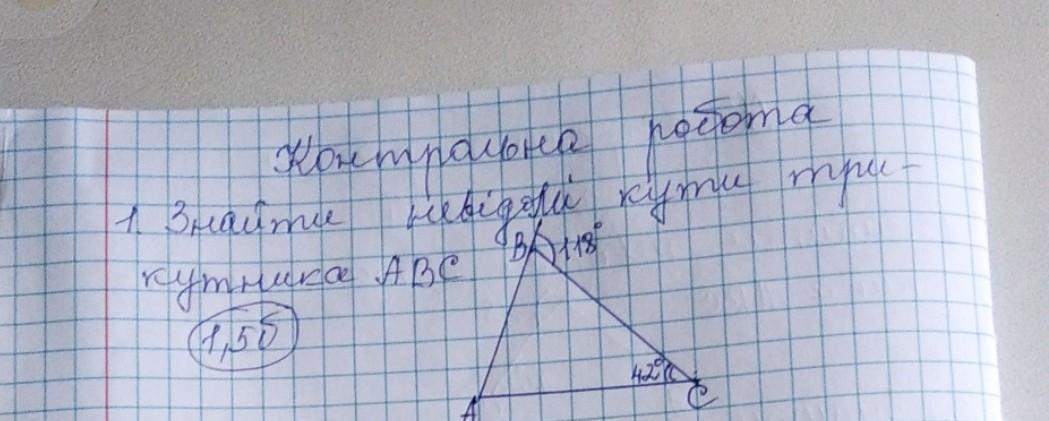 Контрольна робота
1. Знайти невідомі кути три-
кутника ABC
1,5б
B 118°
42°
A C